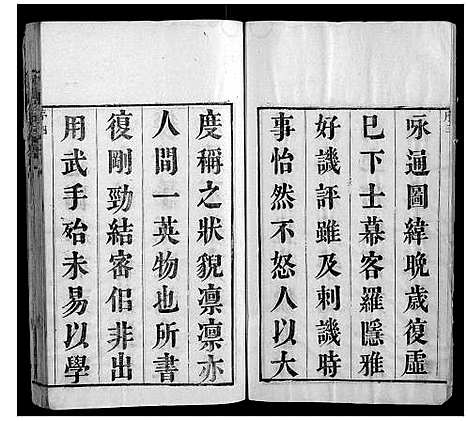 詠通圖緯晚歲復虛
已下士幕客羅隱雅
好譏評雖及刺譏時
事怡然不怒人以大
度稱之狀貌凛凛亦
人間一英物也所書
復剛勁結審侣非出
用武手殆未易以學